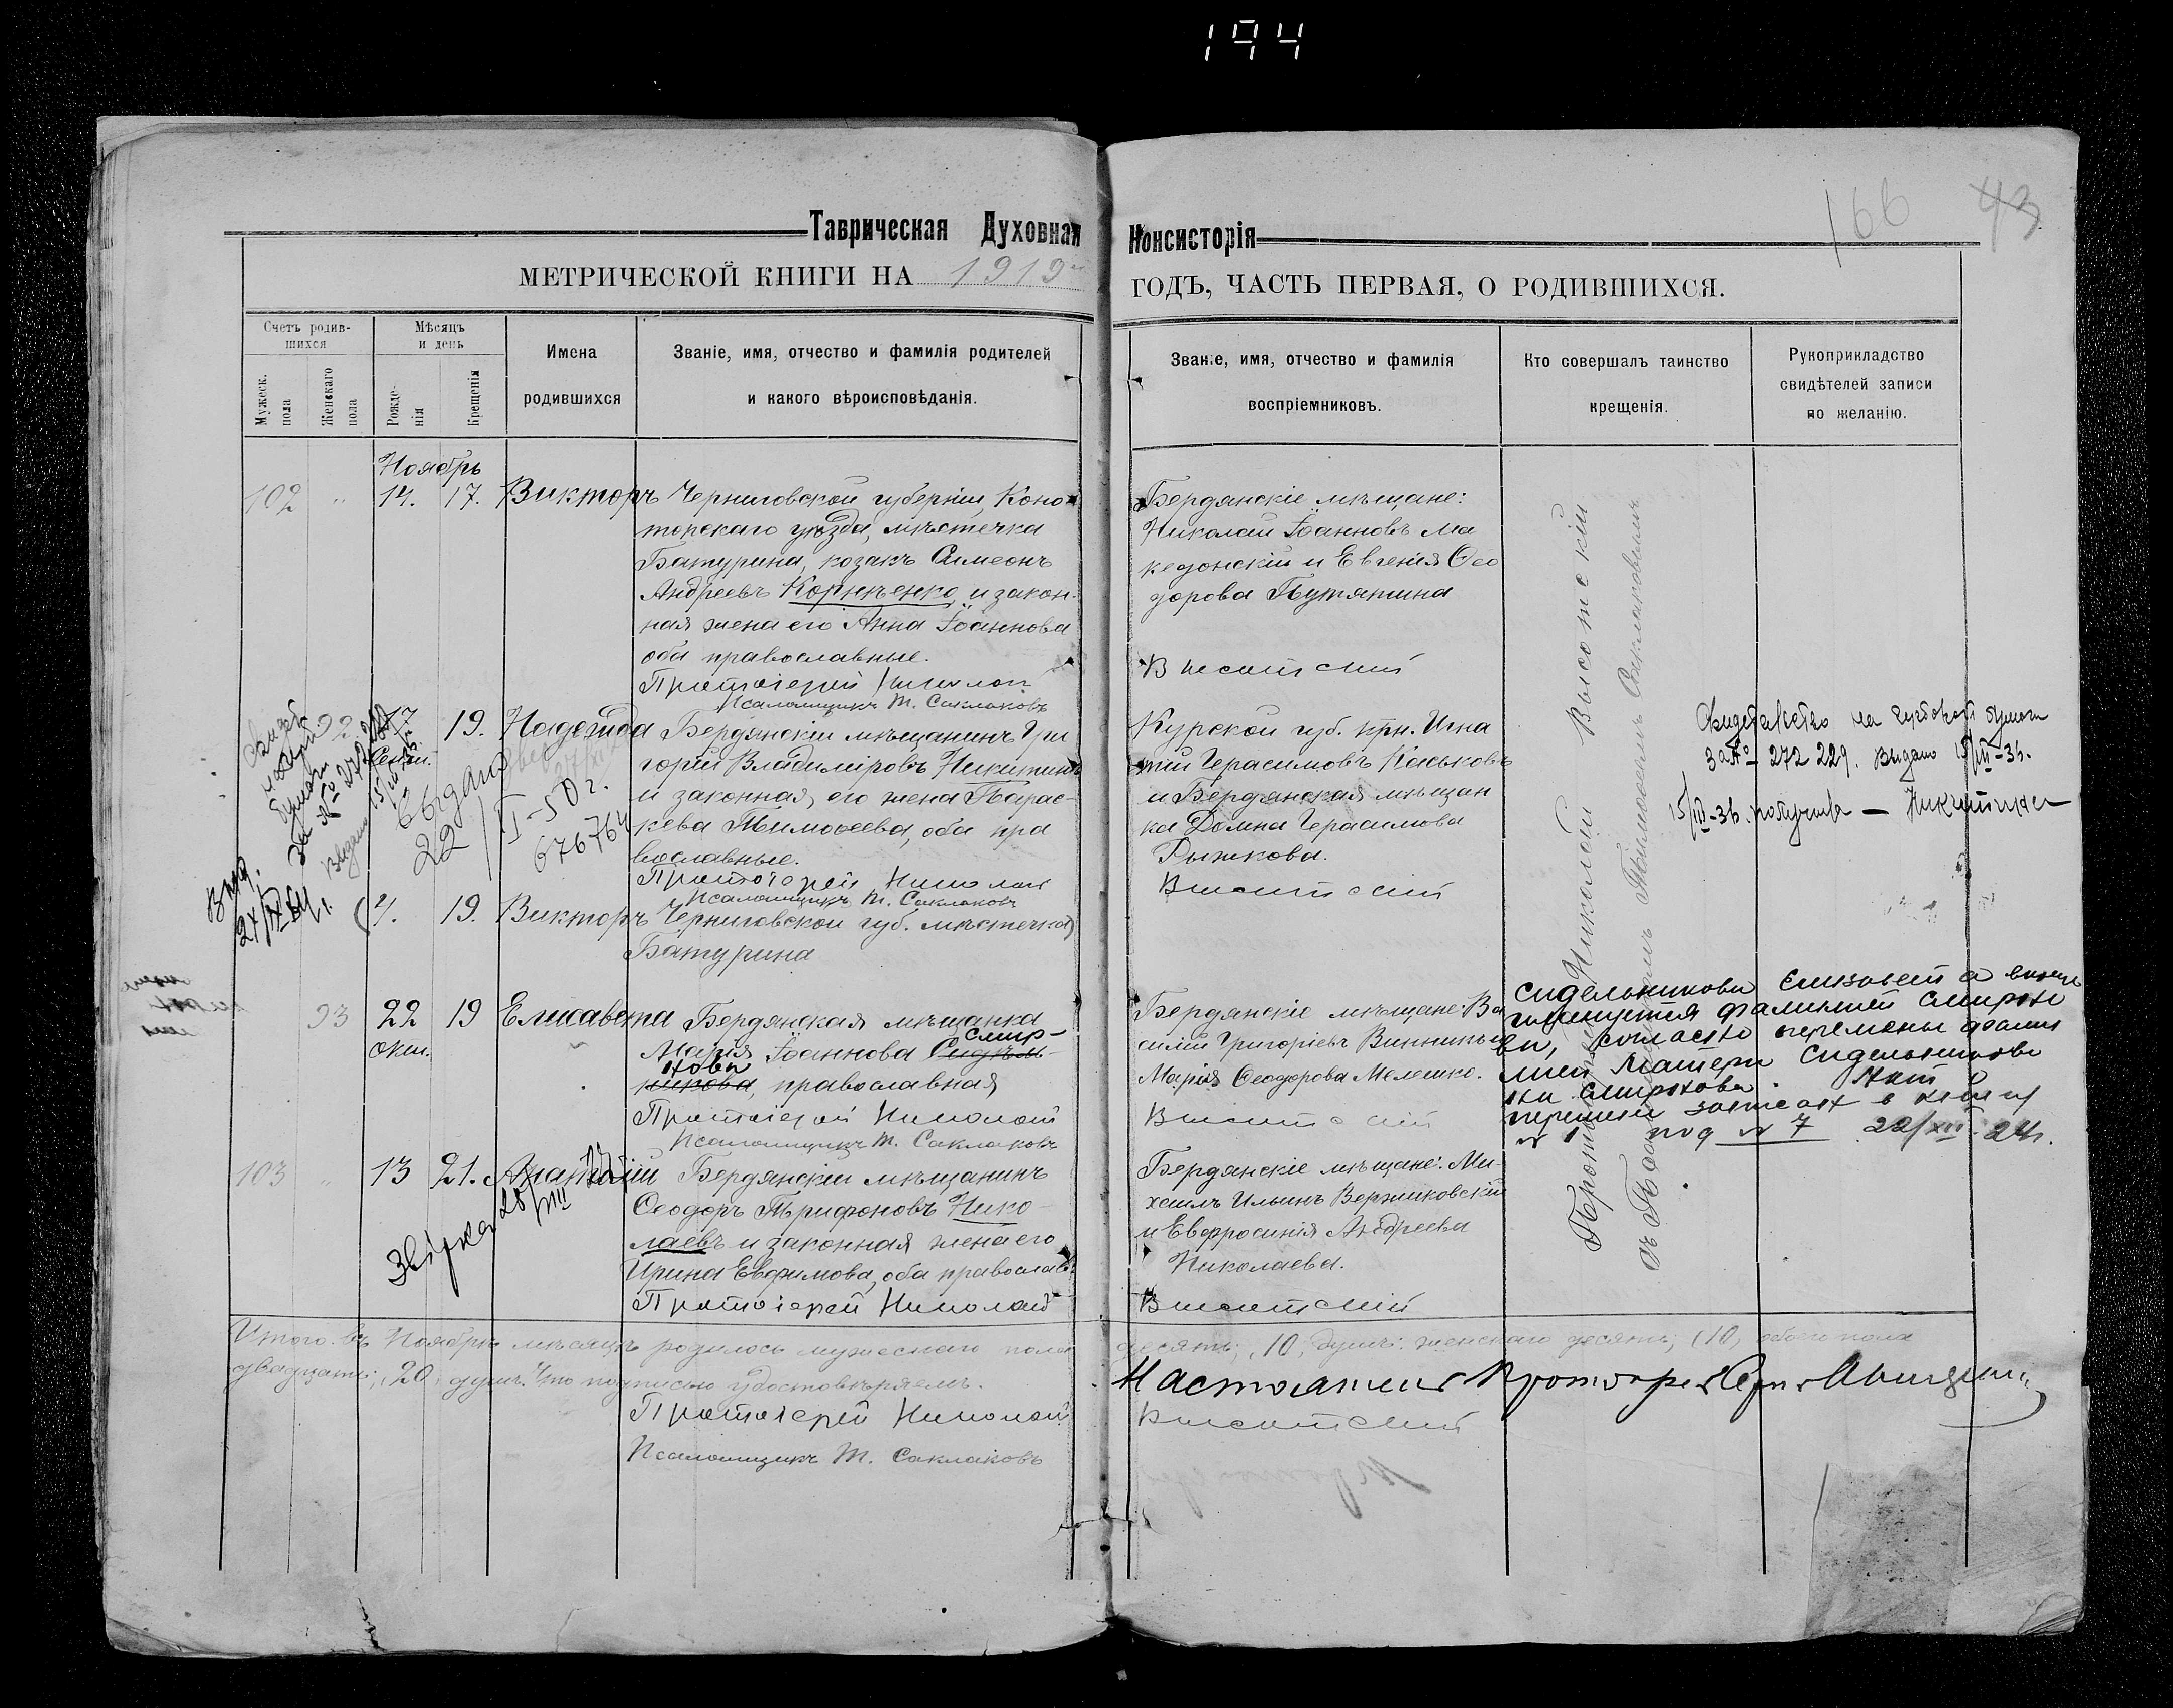 194
166 43
Таврическая Духовная Консисторія
МЕТРИЧЕСКОЙ КНИГИ НА 1919й ГОДЪ, ЧАСТЬ ПЕРВАЯ, О РОДИВШИХСЯ.
Счетъ родив-
шихся
Мужеск.
пола
Женскаго
пола
Мѣсяцъ
и день
Рожде-
нія
Крещенія
Имена
родившихся
Званіе, имя, отчество и фамилія родителей
и какого вѣроисповѣданія.
Званіе, имя, отчество и фамилія
воспріемниковъ.
Кто совершалъ таинство
крещенія.
Рукоприкладство
свидѣтелей записи
по желанію.
Ноябрь
102 " 14. 17. Викторъ
Черниговской губерніи, Коно-
топскаго уѣзда, мѣстечка
Батурина, козакъ Симеонъ
Андреевъ Корнѣенко, и закон-
ная жена его Анна Іоаннова
оба православные.
Протоіерей Николай
Псаломщикъ Т. Саклаковъ
Бердянскіе мѣщане:
Николай Іоанновъ Ма
кедонскій и Евгенія Ѳео
дорова Путятина
Высотскій
92 17 19. Надежда
Бердянскій мѣщанинъ Гри
горій Владиміровъ Никитинъ
и законная, его жена Парас-
кева Тимоѳеева, оба пра
вославные.
Протоіерей Николай
Псаломщикъ Т. Саклаковъ
Курской губ. крн. Игна
тій Герасимовъ Каськовъ
и Бердянская мѣщан
ка Домна Герасимова
Рыжкова.
Высотскій
Выдано
22/II-50г.
676764
Свидетельство на гербовой бумаге
За № 272229. Выдано 15/III-36.
15/III-36. получила — Никитина
19. Викторъ Черниговской губ. мѣстечка)
Батурина
93 22 19 Елисавета
окт.
Бердянская мѣщанка
Марія Іоаннова Сидѣль-
Смир-
нова
никова, православная
Протоіерей Николай
Псаломщикъ Т. Саклаковъ
Бердянскіе мѣщане: Ва
силій Григоріевъ Винникъ и
Марія Ѳеодорова Мелешко.
Высотскій
Сидельникова Елизавета
именуется фамилией Смирно
ва, согласно перемены фами
лии матери Сидельникова
на Смирнова. Акт
перемен записан в книгу
№ 1 под № 7 22/XII-24г.
103 " 13 21. Анатолій
Звірка 28/VIII
Бердянскій мѣщанинъ
Ѳеодоръ Трифоновъ Нико-
лаевъ и законная жена его
Ирина Евфимова, оба православ.
Протоіерей Николай
Бердянскіе мѣщане: Ми-
хаилъ Ильинъ Вержиковскій
и Евфросинія Андреева
Николаева.
Высотскій
Протоіерей Николай Высотскій
съ Псаломщикомъ Тимоѳеемъ Саклаковымъ
Итого въ Ноябрѣ мѣсяцѣ родилось мужескаго пола десять, 10, душъ: женскаго десять, (10), обоего пола
двадцать, 20, душъ. Что подписью удостовѣряемъ.
Протоіерей Николай Высотскій
Псаломщикъ Т. Саклаковъ
Настоятель Протоіерей